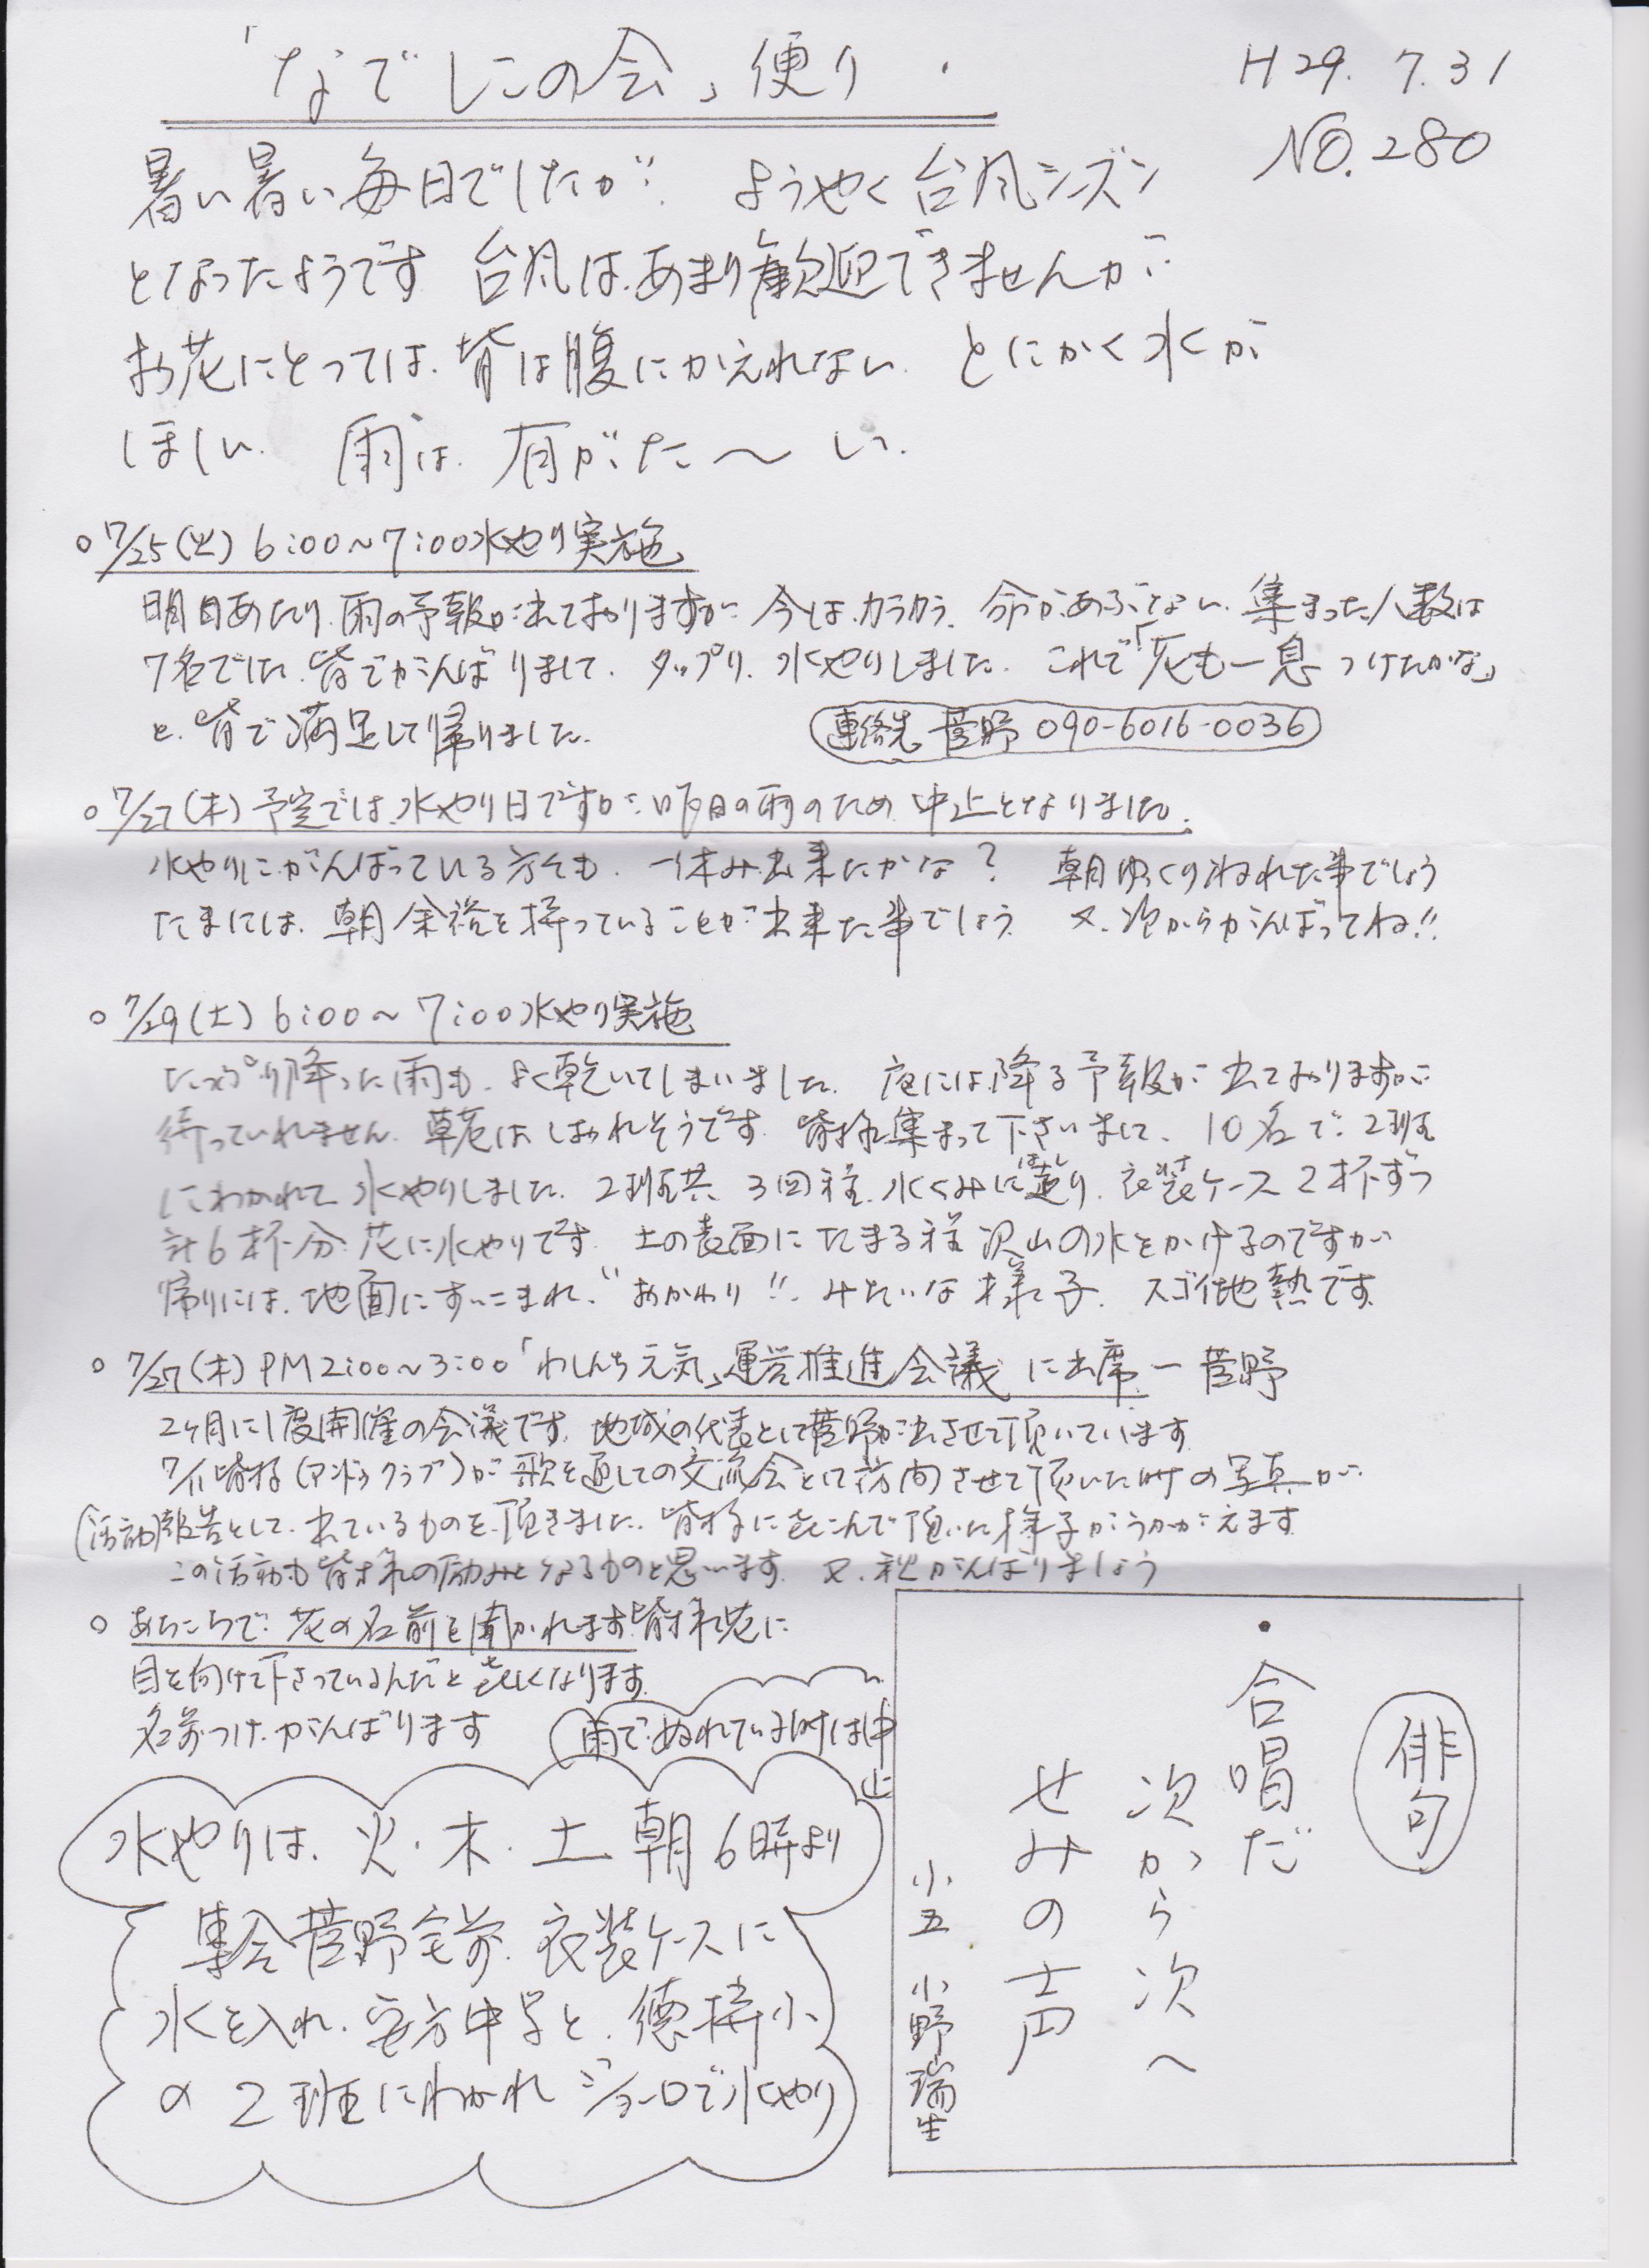 「なでしこの会」便り
H29. 7. 31
NO. 280
暑い暑い毎日でしたが ようやく台風シーズン
となったようです 台風は、あまり歓迎できませんが
お花にとっては、背は腹にかえれない とにかく水が
ほしい 雨は、有がた〜い。
○7/25(火) 6:00~7:00水やり実施
明日あたり、雨の予報が出ておりますが 今は、カラカラ、命があぶない、集まった人数は
7名でした、皆でがんばりまして、タップリ、水やりしました、これで「花も一息つけたかな」
と、皆で満足して帰りました。
連絡先 菅野 090-6016-0036
○7/27(木)予定では、水やり日ですが、昨日の雨のため 中止となりました。
水やりにがんばっている方々も、一休み出来たかな? 朝ゆっくりねれた事でしょう
たまには、朝余裕を持っていることが出来た事でしょう 又、次からがんばってね!!
○7/29(土) 6:00~7:00水やり実施
たっぷり降った雨も、よく乾いてしまいました、夜には、降る予報が出ておりますが
待っていれません、草花は、しおれそうです 皆様集まって下さいまして、10名で 2班
にわかれて 水やりしました、2班共 3回程、水くみに走り、衣装ケース2杯ずつ
計6杯分 花に水やりです 土の表面に たまる程 沢山の水をかけるのですが
帰りには、地面にすいこまれ、"おかわり"!! みたいな様子、スゴイ地熱です
○ 7/27(木) PM2:00~3:00「わしんち元気」運営推進会議に出席 ー 菅野
2ヶ月に1度開催の会議です、地域の代表として菅野が出させて頂いています
7/11皆様(アンドゥクラブ)が歌を通しての交流会として訪問させて頂いた時の写真が
(活動)報告として、出ているものを頂きました、皆様に喜こんで頂いた様子がうかがえます
この活動も皆様の励みとなるものと思います 又、秋がんばりましょう
○ あちこちで 花の名前を聞かれます 皆様花に
目を向けて下さっているんだと喜しくなります
名前つけ、がんばります
雨でぬれている時は中止
水やりは、火・木・土 朝6時より
集合菅野宅前、衣装ケースに
水を入れ、安方中学と、徳持小
の2班にわかれ ジョーロで水やり
俳句
・合唱だ
次から次へ
せみの声
小五 小野瑞生